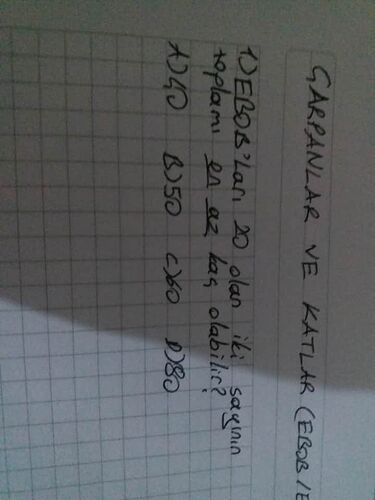 ÇARPANLAR VE KATLAR (EBOB/E
1) EBOB'ları 20 olan iki sayının
toplamı en az kaç olabilir?
A) 40 B) 50 C) 60 D) 80